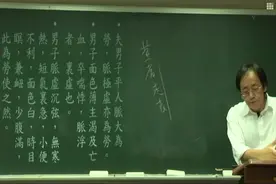 。夫男子平人脈大為
勞，脈極虛亦為勞。
。男子面色薄主渴及亡
血，卒喘悸，脈浮
者，裏虛也。
。男子脈虛沉弦，無寒
熱，短氣裏急，小便
不利，面色白，時目
瞑，兼衄，少腹滿，
此為勞使之然。